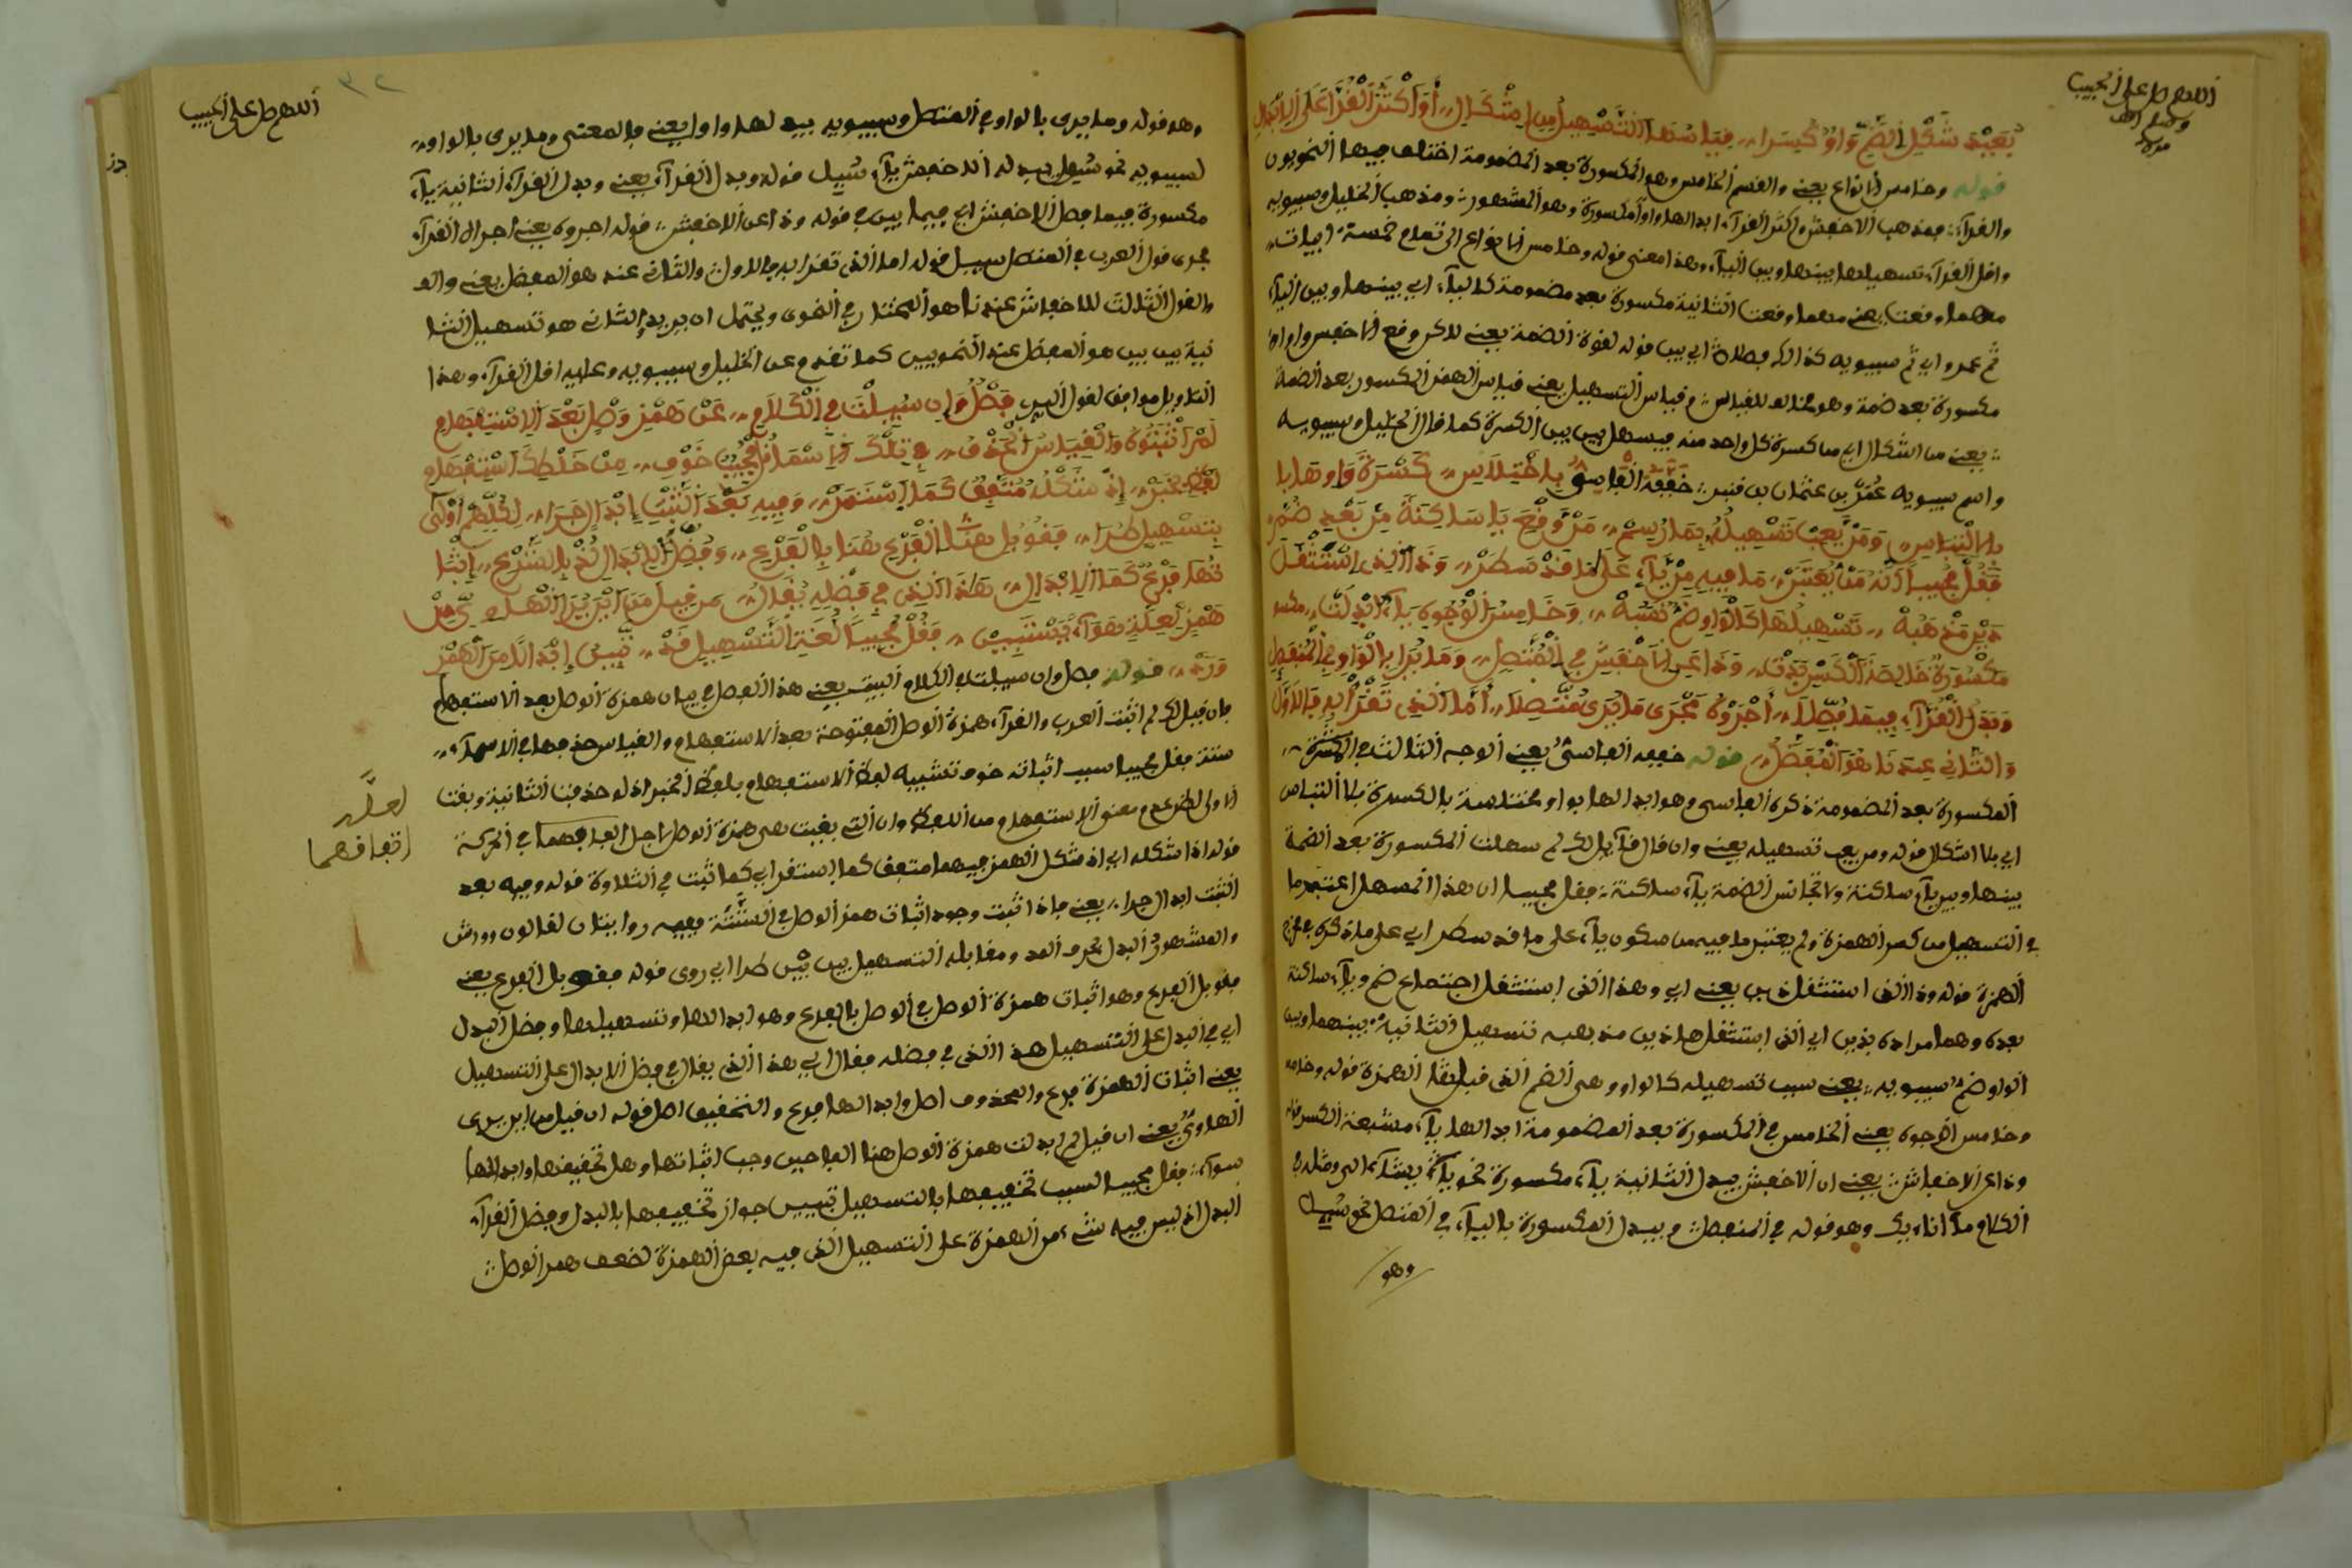 اللهم صل على الحبيب
بعيد شكل الضم واو كسرا قياسها التسهيل من اشكال أو أكثر القرا على الابدال
قوله وخامس الانواع يعني والقسم الخامس وهو المكسورة بعد المضمومة اختلف فيها النحويون
والقرآء فمذهب الاخفش واكثر القرآء ابدالها واوا مكسورة وهو المشهور ومذهب الخليل وسيبويه
واقل القرآء تسهيلها بينها وبين اليآء وهذا معنى قوله وخامس الانواع الى تمام خمسة ابيات
مهما وقعت يعني مهما وقعت الثانية مكسورة بعد مضمومة كاليآء اي بينها وبين اليآء
ثم عمرو اي ثم سيبويه كذلك قوله لقوة الضمة يعني
مكسورة بعد ضمة وهو مخالف للقياس قياس التسهيل يعني قياس الهمز المكسور بعد الضمة
يعني من الشكل اي من كسرة كل واحد منه فيسهل بين بين الكسرة كما قال الخليل وسيبويه
واسم سيبويه عمرو بن عثمان بن قنبر حققه الفاسي باختلاس كسرة واوها بلا
بلا التباس ومن يعب تسهيله بما رسم من وقع يا ساكنة من بعد ضم
فقل مجيبا انه من يعتبر ما فيه من يآء على ما قد سطر وذا الذي استثقل
ذين مذهبه تسهيلها كالواو ضم نفسه وخامس الوجوه يآء ابدلت مكسو
مكسورة خالصة الكسر وذا عن الاخفش في المتصل وما يرى بالواو في المنفصل
وبدل القرآء فيما فصلا أجروه مجرى ما يرى متصلا أما الذي تقرا به فالاول
والثاني عندنا هو المفضل قوله حققه الفاسي يعني الوجه الثالث في
المكسورة بعد المضمومة ذكره الفاسي وهو ابدالها بواو مختلسة بالكسرة بلا التباس
اي بلا اشكال قوله ومن يعب تسهيله يعني وان قال قآئل لك لم سهلت المكسورة بعد الضمة
بينها وبين يآء ساكنة ولا تجانس الضمة يآء ساكنة فقل مجيبا ان هذا المسهل اعتبر ما
في التسهيل من كسر الهمزة ولم يعتبر ما فيه من سكون يآء على ما قد سطر اي على ما ذكره
الهمزة قوله وذا الذي استثقل ذين يعني اي وهذا الذي استثقل اجتماع ضم ويآء ساكنة
بعده وهما مراده بذين اي الذي استثقل هاذين مذهبه تسهيل الثانية بينها وبين
الواو ضم سيبويه يعني سبب تسهيله كالواو وهي الضم الذي قبل هذا الهمزة قوله وخامس
وخامس الاجوه يعني الخامس في المكسورة بعد المضمومة ابدالها يآء مشبعة الكسر قوله
وذا عن الاخفاش يعني ان الاخفش يبدل الثانية يآء مكسورة نحو يشآء الى ومثله في
الكلام ما أناءيك وهو قوله في المنفصل ويبدل المكسورة باليآء في المتصل نحو سئيل
وهو
٣٢
اللهم صل على الحبيب
وهو قوله وما يرى بالواو في المتصل وسيبويه يبدلها واوا يعني فالمعنى وما يرى بالواو
لسيبويه نحو سئيل يبدله الاخفش يآء سييل قوله وبدل القرآء يعني وبدل القرآء الثانية يآء
مكسورة فيما فصل الاخفش اي فيما بين في قوله وذا عن الاخفش قوله اجروه يعني اجرى القرآء
مجرى قول العرب في المتصل سييل قوله اما الذي تقرا به فالاول والثاني عندنا هو المفضل يعني والقول
والقول الثالث للاخفاش عندنا هو المختار في القوى ويحتمل ان يريد بالثاني هو تسهيل الثا
نية بين بين هو المفضل عند النحويين كما تقدم عن الخليل وسيبويه وعليه اقل القرآء وهذا
التاويل موافق لقول البري فصل وان سيلت في الكلام عن همز وصل بعد الاستفهام
لم أثبتوه والقياس الحذف في تلك الاسما قل مجيبا خوف من خلط الاستفهام
لفظ خبر إذ شكله متفق كما استقر وفيه بعد الثبت إبدال جرا لكلهم أولى
بتسهيل طرا فقوبل هنا الفرع هنا بالفرع وفضل الابدال خذ بالشرع إثبا
تها فرع كما الابدال هذا الذي في فضله يقال من قيل من اين يرى الهاوي من
همز لعلة هوآء يستبين فقل مجيبا لغة التسهيل قد تبين إبدالا من الهمز
ورد قوله فصل وان سيلت في الكلام البيت يعني هذا الفصل في بيان همزة الوصل بعد الاستفهام
فان قيل لك لم اثبت العرب والقرآء همزة الوصل المفتوحة بعد الاستفهام والقياس حذفها في الاسمآء
ستة فقل مجيبا سبب اثباته خوف تشبيه لفظ الاستفهام بلفظ الخبر اذ لو حذفنا الثانية وبقت
الاولى لظن عدم معنى الاستفهام من اللفظ وان التي بقيت هي همزة الوصل لاجل اتفاقهما في الحركة
قوله اذا شكله اي اذ شكل الهمز فيهما متفق كما استقر اي كما ثبت في التلاوة قوله وفيه بعد
الثبت ابدال جرا يعني فاذا ثبت وجود اثبات همز الوصل في الستة ففيه روايتان لقالون وورش
والمشهور البدل بحرف المد ومقابله التسهيل بين بين طرا اي روى قوله فقوبل الفرع يعني
فقوبل الفرع وهو اثبات همزة الوصل في الوصل بالفرع وهو ابدالها وتسهيلها وفضل البدل
اي في البدل على التسهيل هذا الذي في فضله يقال اي هذا الذي يقال في فضل الابدال على التسهيل
يعني اثبات الهمزة فرع والمحذوف اصل وابدالها فرع والتخفيف اصل قوله ان قيل من اين يرى
الهاوي يعني ان قيل لم ابدلت همزة الوصل هنا الفا حين وجب اثباتها وهل تخفيفها وابدالها
سوآء فقل مجيبا لسبب تخفيفها بالتسهيل تبيين جواز تخفيفها بالبدل وفضل القرآء
البدل اذ ليس فيه شيء من الهمزة على التسهيل الذي فيه بعض الهمزة لضعف همز الوصل
لعله
اتفاقهما